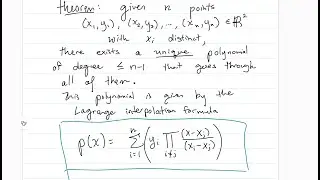 theorem: given n points
(x₁,y₁), (x₂,y₂), ..., (xₙ,yₙ) ∈ ℝ²
with xᵢ distinct,
there exists a unique polynomial
of degree ≤ n-1 that goes through
all of them.
This polynomial is given by the
Lagrange interpolation formula
p(x) = ∑ᵢ₌₁ⁿ (yᵢ ∏_{i≠j} (x-xⱼ)/(xᵢ-xⱼ))